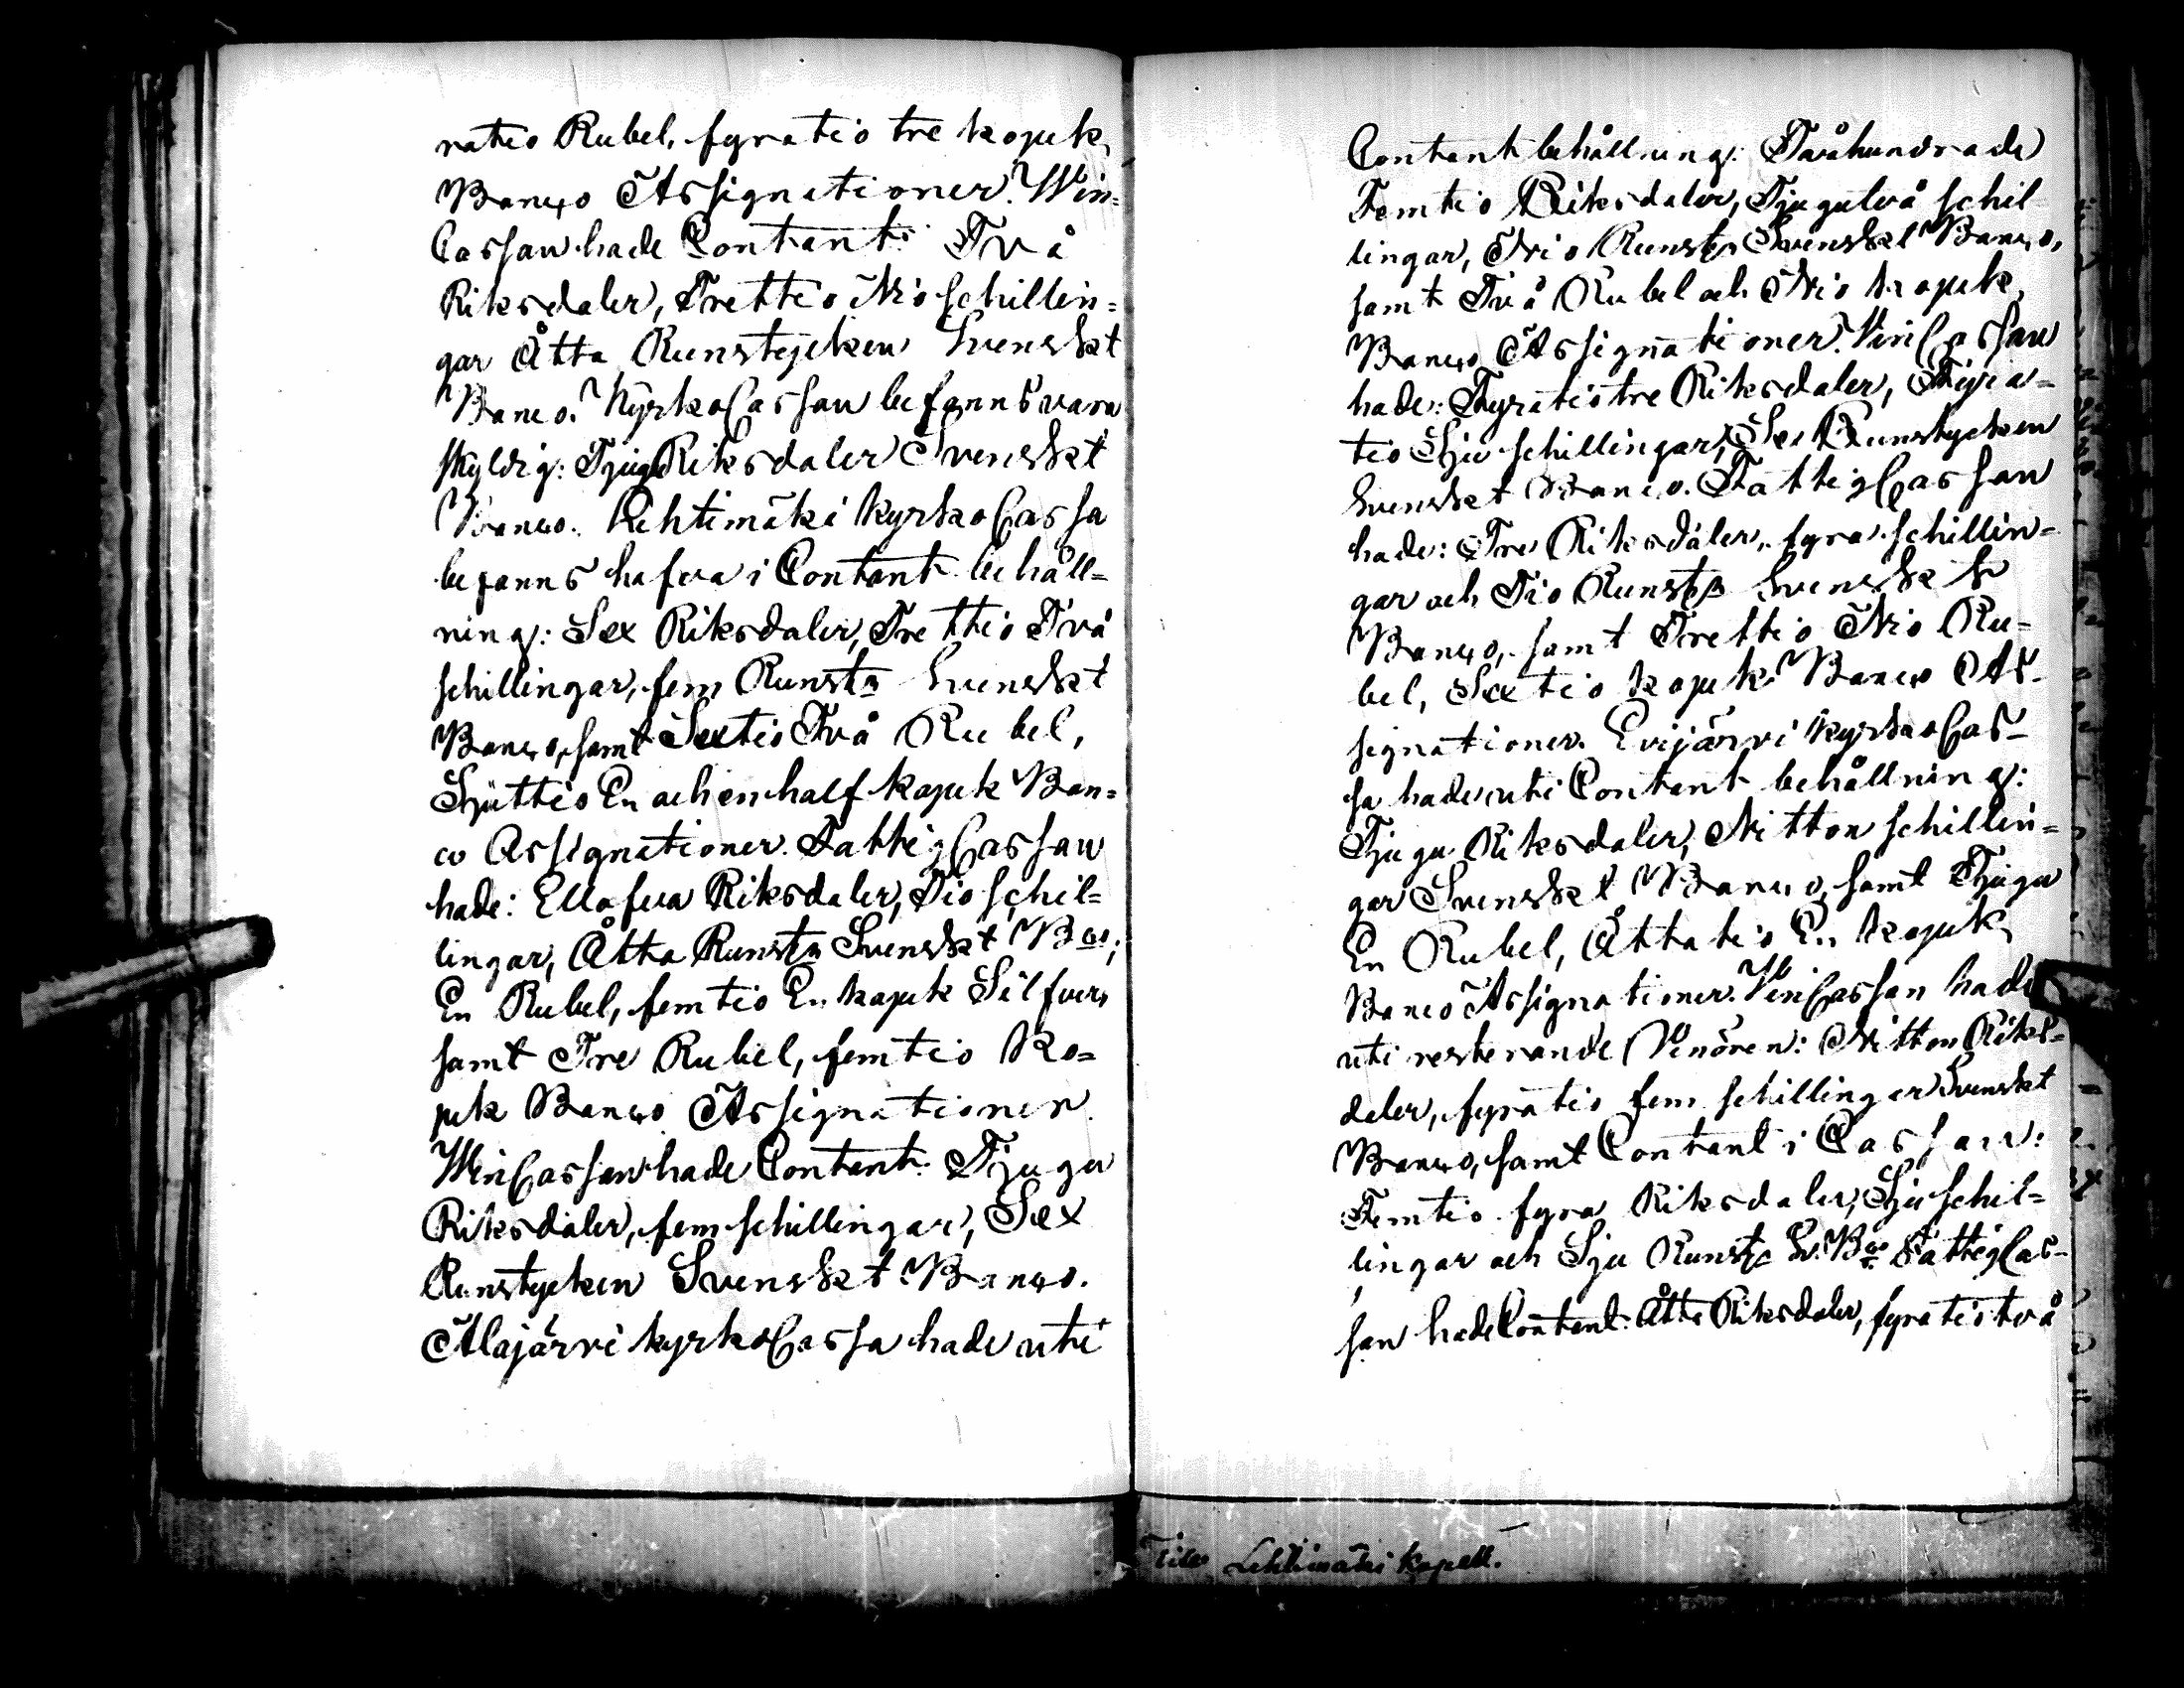 ratio Rubel, fyratio tre kopek,
Banco Assignationer. Win-
Cassan hade Contant: Två
Riksdaler, Trettio Nio schillin-
gar Åtta Runstycken Svenskt
Banco. KyrkoCassan befanns vara
skyldig: Tjugu Riksdaler Svenskt
Banco. Lehtimäki kyrkoCassa
befanns hafva i Contant behåll-
ning: Sex Riksdaler, Trettio Två
schillingar, fem Runstr Svenskt
Banco, samt Sextio Två Rubel,
Sjuttio En och en half kopek Ban-
co Assignationer. FattigCassan
hade: Ellofva Riksdaler, Tio schil-
lingar, Åtta Runstr Svenskt Bco;
En Rubel, femtio En kopek Silfver,
samt Tre Rubel, femtio Ko-
pek Banco Assignationer.
WinCassan hade Contant: Tjugu
Riksdaler, fem schillingar, Sex
Runstycken Svenskt Banco.
Alajärvi kyrkoCassa hade uti
Contant behållning: Tvåhundrade
Femtio Riksdaler, Tjugutvå schil-
lingar, Nio Runstr Svenskt Banco,
samt Två Rubel och Nio kopek,
Banco Assignationer. VinCassan
hade: Fyratiotre Riksdaler, Fyra-
tio Sju schillingar, Sex Runstycken
Svenskt Banco. FattigCassan
hade: Tre Riksdaler, fyra schillin-
gar och Tio Runstr Svenskt
Banco, samt Trettio Nio Ru-
bel, Sextio kopek Banco As-
signationer. Evijärvi kyrkoCas-
sa hade uti Contant behållning:
Tjugu Riksdaler, Nitton schillin-
gar Svenskt Banco, samt Tjugu
En Rubel, Åttatio En kopek,
Banco Assignationer. VinCassan hade
uti resterande Vinören: Nitton Riks-
daler, fyratio fem schillingar Svenskt
Banco, samt Contant i Cassan:
Femtio fyra Riksdaler, Sju schil-
lingar och Sju Runstr Sv. Bco. FattigCas-
san hade Contant: Åtta Riksdaler, fyratiotvå
Lehtimäki kapell.